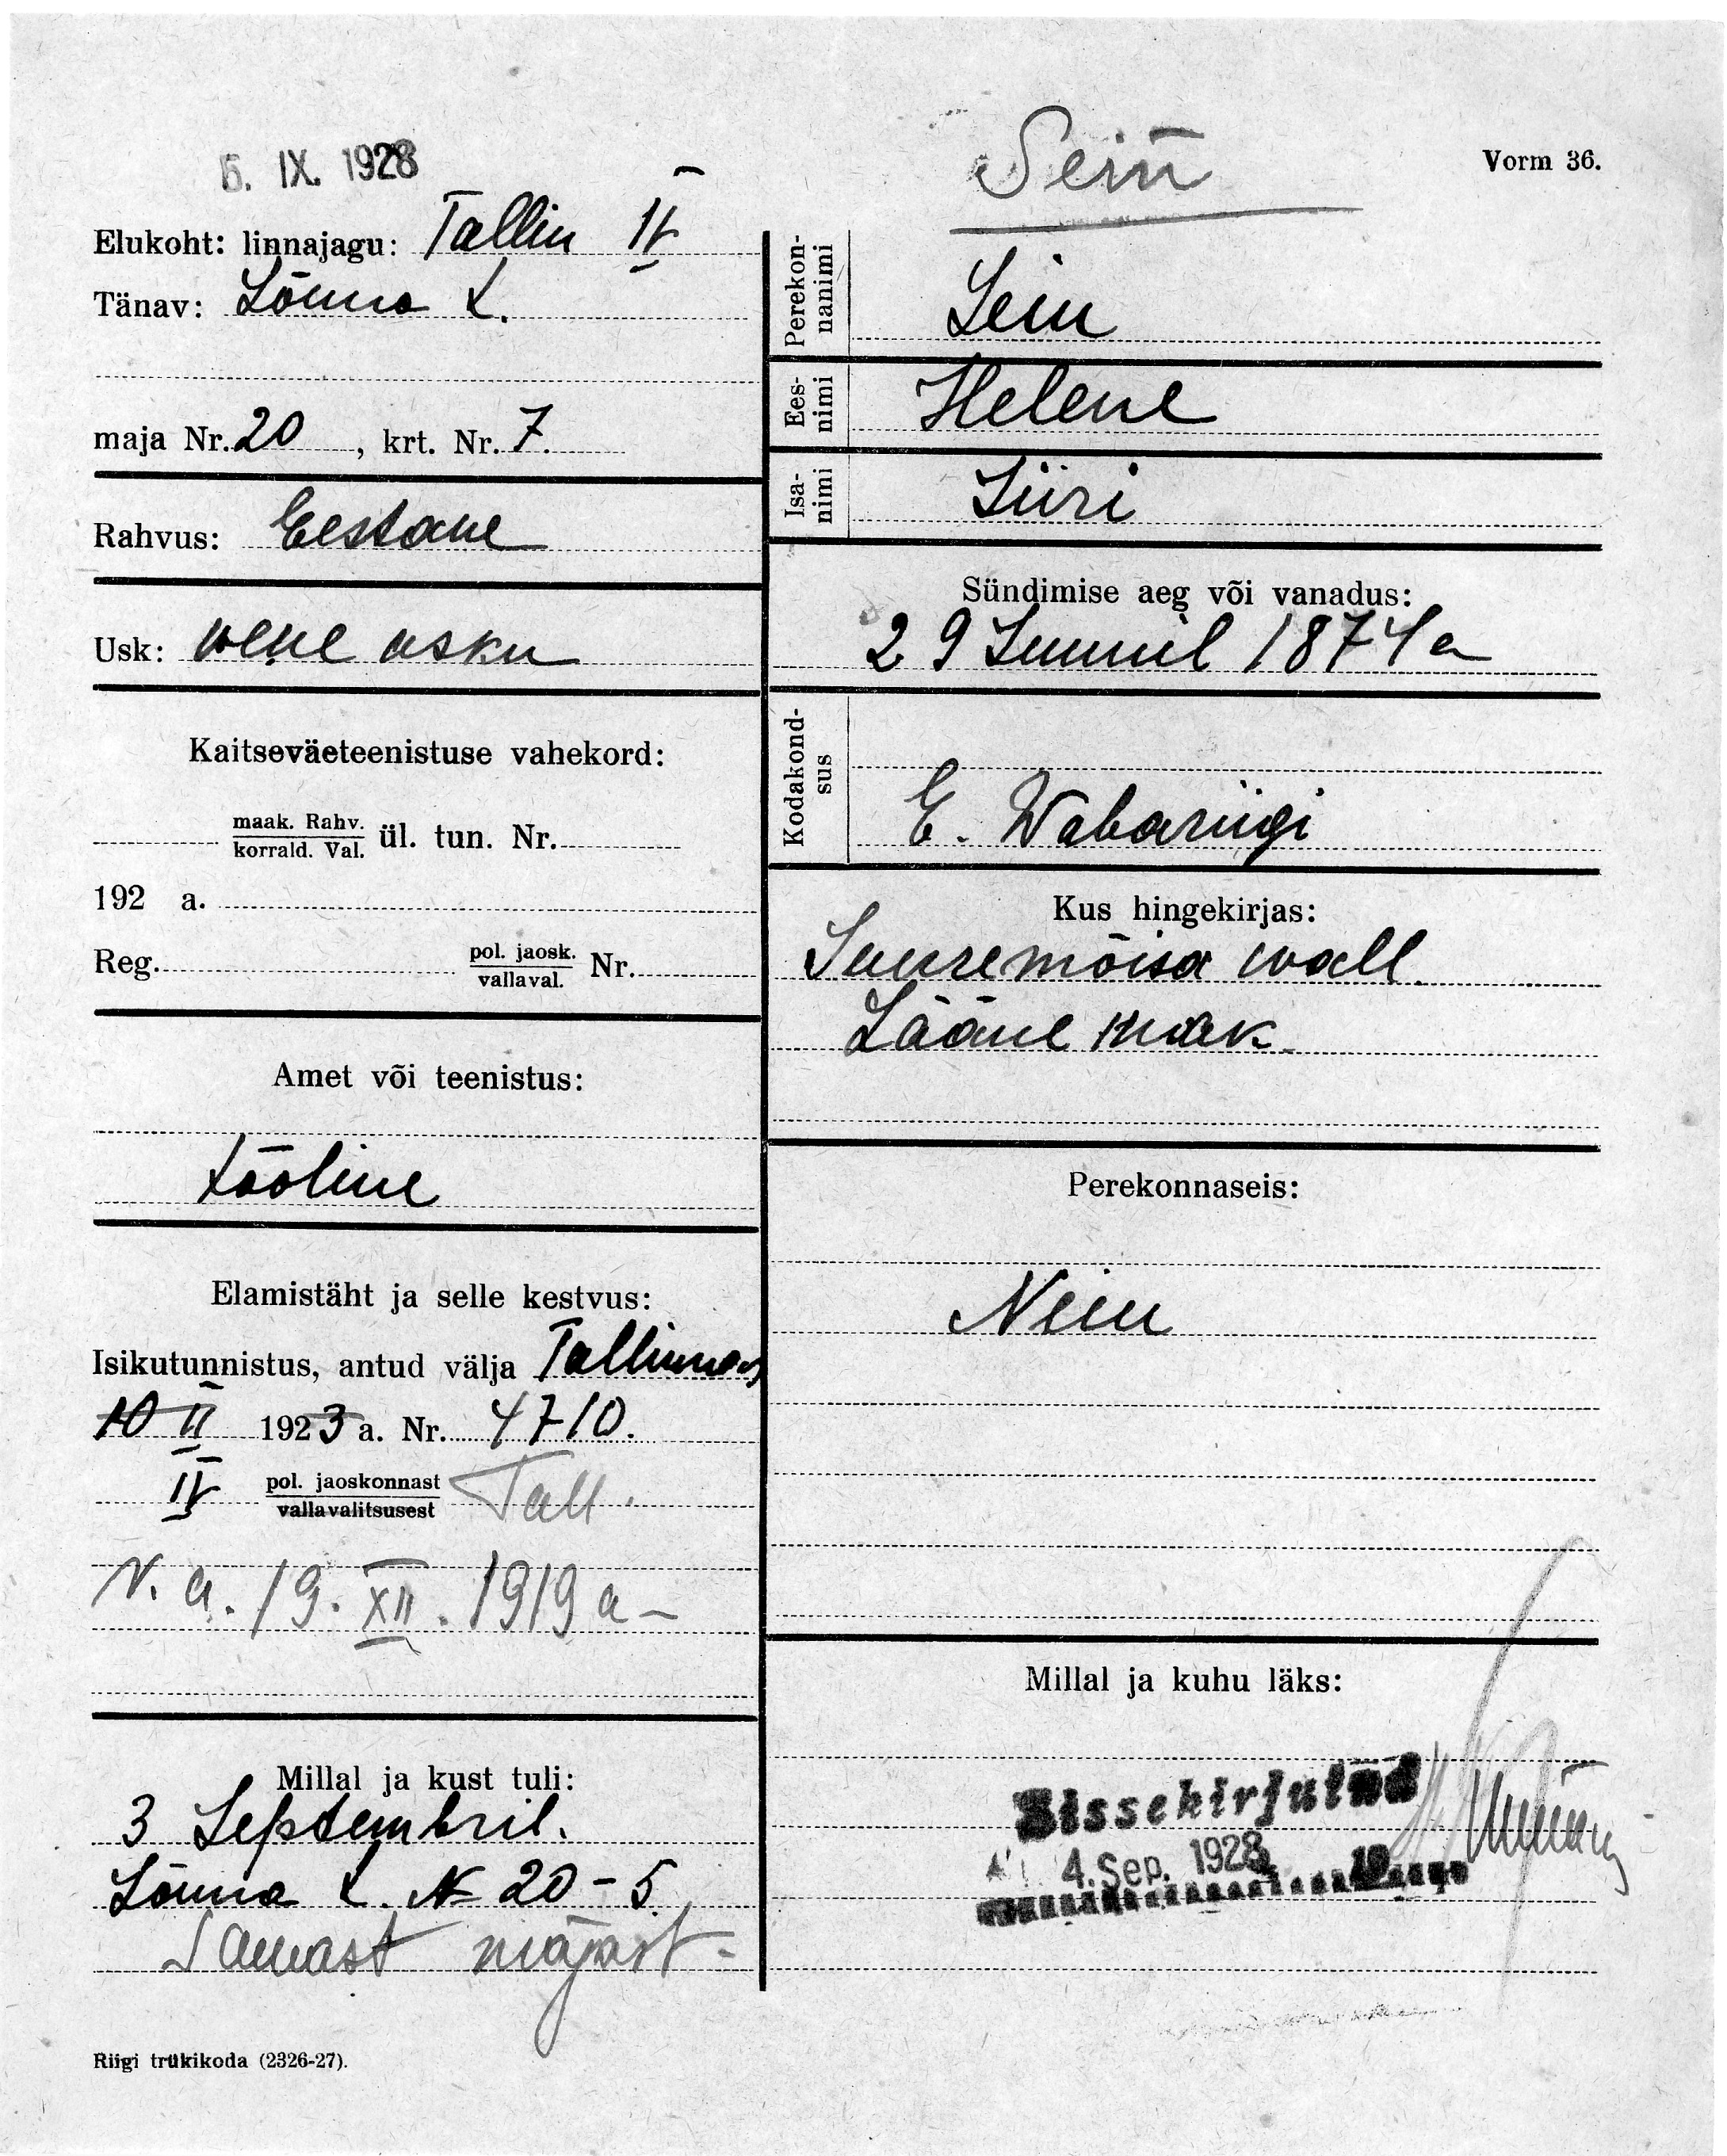 5. IX. 1928
Sein
Vorm 36.
Elukoht: linnajagu: Tallin IV
Tänav: Sõuna t.
maja Nr. 20, krt. Nr. 7.
Rahvus: Eestane
Usk: wene usku
Kaitseväeteenistuse vahekord:
maak. Rahv. korrald. Val. ül. tun. Nr.
192 a.
Reg. pol. jaosk. vallaval. Nr.
Amet või teenistus:
tööline
Elamistäht ja selle kestvus:
Isikutunnistus, antud välja Tallinnas
10 II 1923 a. Nr. 4710.
IV pol. jaoskonnast vallavalitsusest Tall.
V. a. 19. XII. 1919 a –
Millal ja kust tuli:
3 Septembril.
Sõuna t. № 20 – 5
Samast majast –
Riigi trükikoda (2326-27).
Perekonnanimi Sein
Eesnimi Helene
Isanimi Jüri
Sündimise aeg või vanadus:
29 Juunil 1874 a
Kodakondsus
E. Wabariigi
Kus hingekirjas:
Suuremõisa wall.
Lääne mak.
Perekonnaseis:
Neiu
Millal ja kuhu läks:
Sissekirjutud
4. Sep. 1928